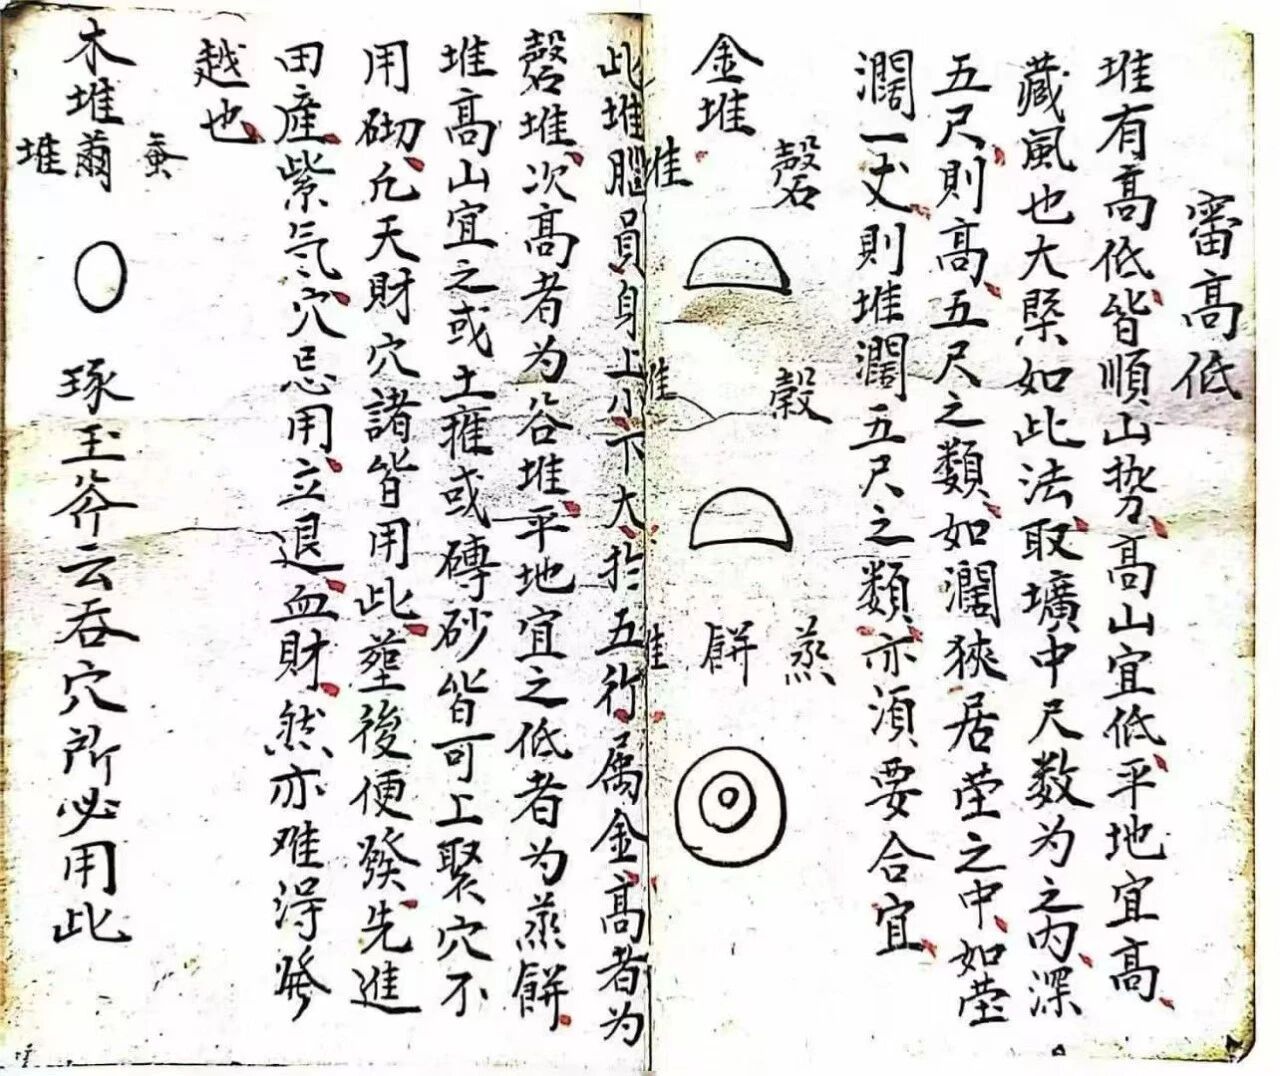 審高低
堆有高低皆順山势高山宜低平地宜高
藏風也大槩如此法取壙中尺数为之内深
五尺則高五尺之類如濶狹居茔之中如茔
濶一丈則堆濶五尺之類亦須要合宜
金堆
磬堆
穀堆
蒸餅堆
此堆腦員身上小下大於五行属金高者为
磬堆次高者为谷堆平地宜之低者为蒸餅
堆高山宜之或土擁或磚砂皆可上聚穴不
用砌凢天財穴諸皆用此塟後便發先進
田產紫气穴忌用立退血財然亦难得發
越也
木堆
蚕蔄堆
琢玉斧云吞穴所必用此